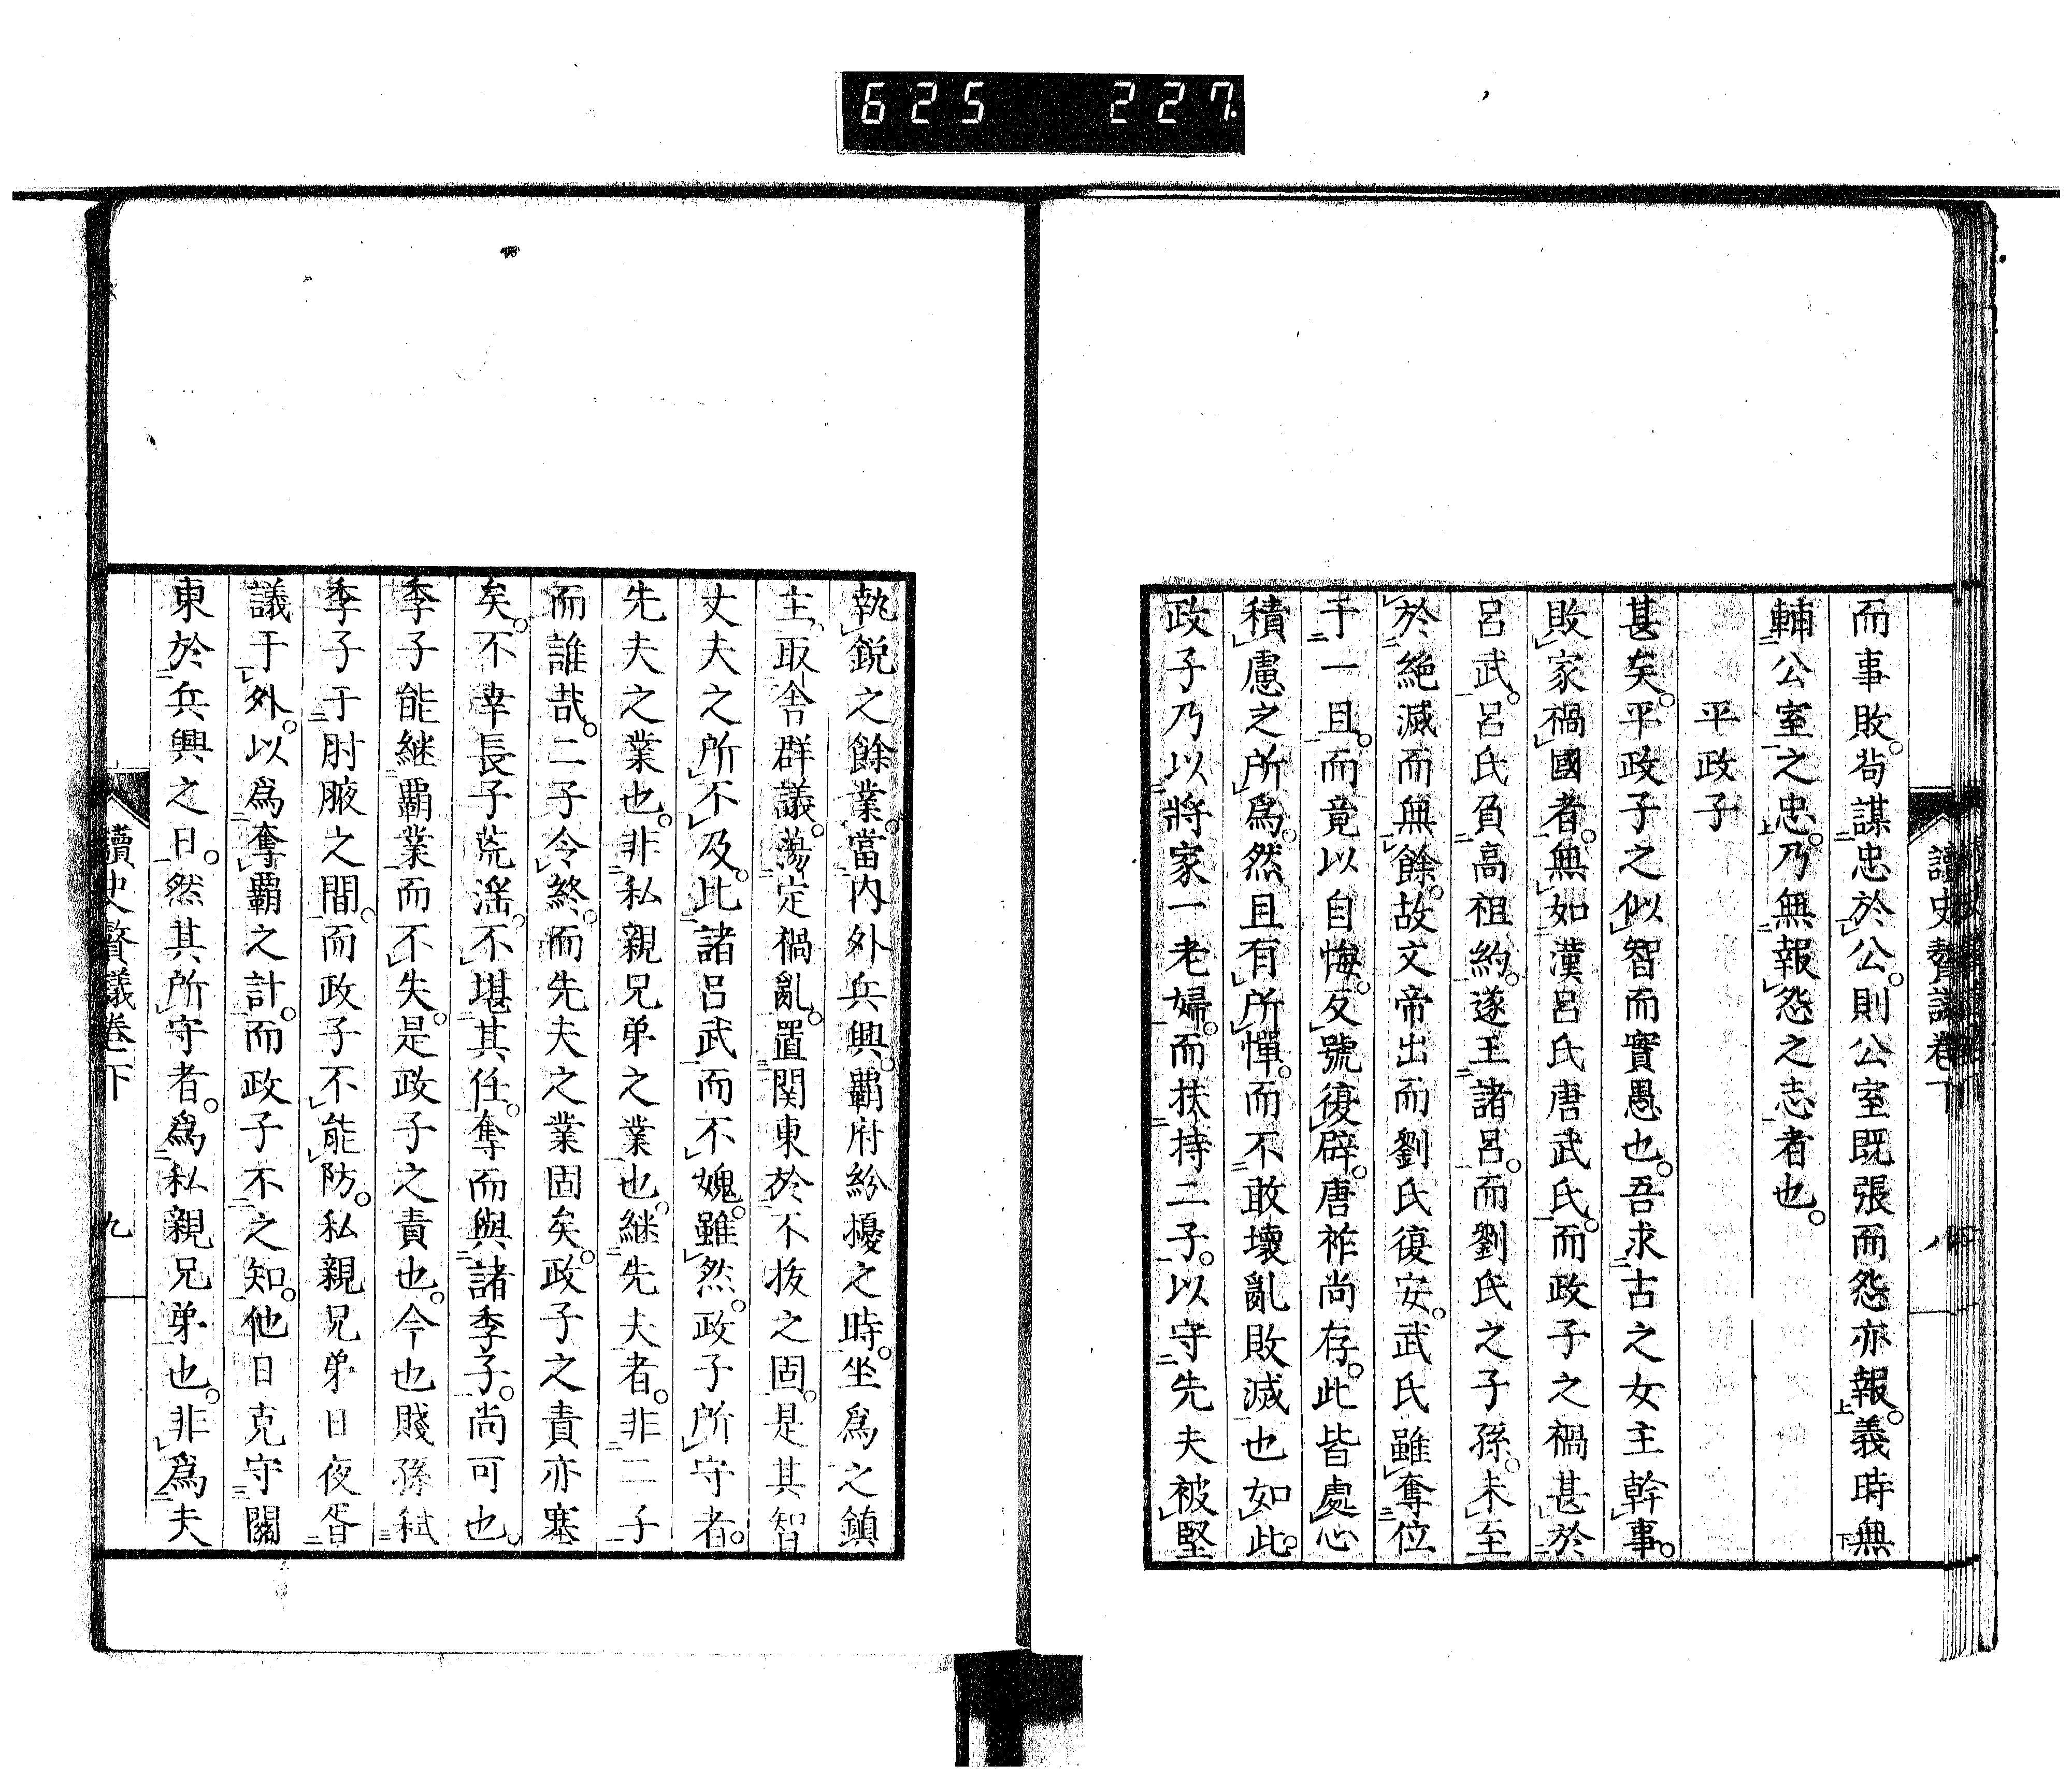 625 227
讀史贅議卷下 八
而事敗。苟謀忠於公。則公室既張而怨亦報。義時無
輔公室之忠。乃無報怨之志者也。
平政子
甚矣。平政子之似智而實愚也。吾求古之女主幹事。
敗家禍國者。無如漢呂氏唐武氏。而政子之禍甚於
呂武。呂氏負高祖約。遂王諸呂。而劉氏之子孫。未至
於絕滅而無餘。故文帝出而劉氏復安。武氏雖奪位
于一旦。而竟以自悔。反號復辟。唐祚尚存。此皆處心
積慮之所為。然且有所憚。而不敢壞亂敗滅也如此。
政子乃以將家一老婦。而扶持二子。以守先夫被堅
執銳之餘業。當內外兵興。霸府紛擾之時。坐爲之鎮
主。取舍群議。蕩定禍亂。置関東於不拔之固。是其智
丈夫之所不及。此諸呂武而不媿。雖然。政子所守者。
先夫之業也。非私親兄弟之業也。継先夫者。非二子
而誰哉。二子令終。而先夫之業固矣。政子之責亦塞
矣。不幸長子荒淫。不堪其任。奪而與諸季子。尚可也。
季子能継霸業而不失。是政子之責也。今也賤孫弒
季子于肘腋之間。而政子不能防。私親兄弟日夜胥
議于外。以爲奪霸之計。而政子不之知。他日克守關
東於兵興之日。然其所守者。爲私親兄弟也。非爲夫
讀史贅議卷下 九